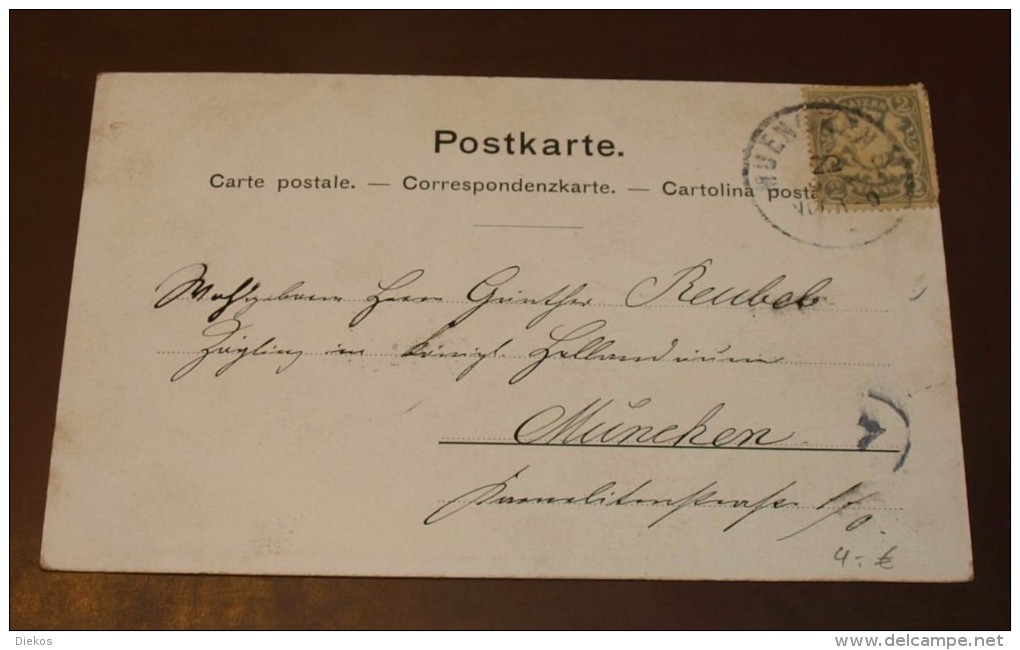 Postkarte.
Carte postale. — Correspondenzkarte. — Cartolina posta
2 BAYERN 2
MUEN
22
2 2
Wohlgeboren Herrn Günther Reubel
Zögling im königl. Hollandeum
München
Karmelitenstraße 1/0.
4.- €
Diekos
www.delcampe.net